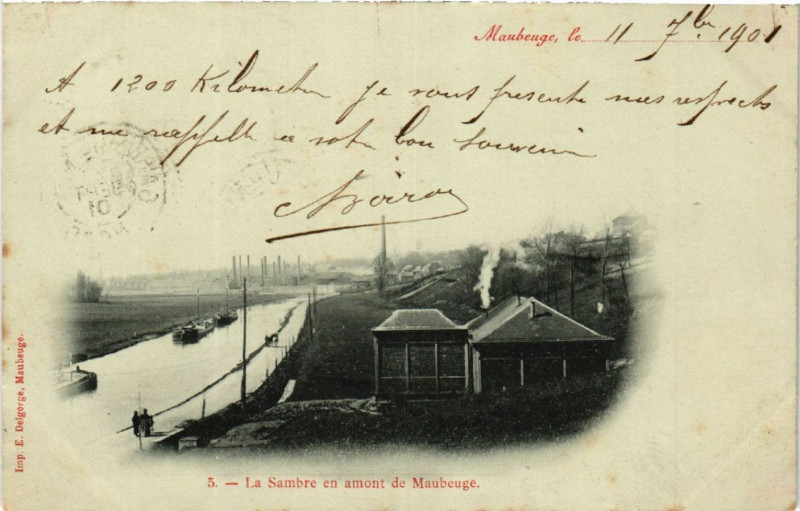 Maubeuge, le 11 7bre 1901
A 1200 Kilometres je vous presente mes respects
et me rappelle a votre bon souvenir
5. — La Sambre en amont de Maubeuge.
Imp. E. Delgorge, Maubeuge.